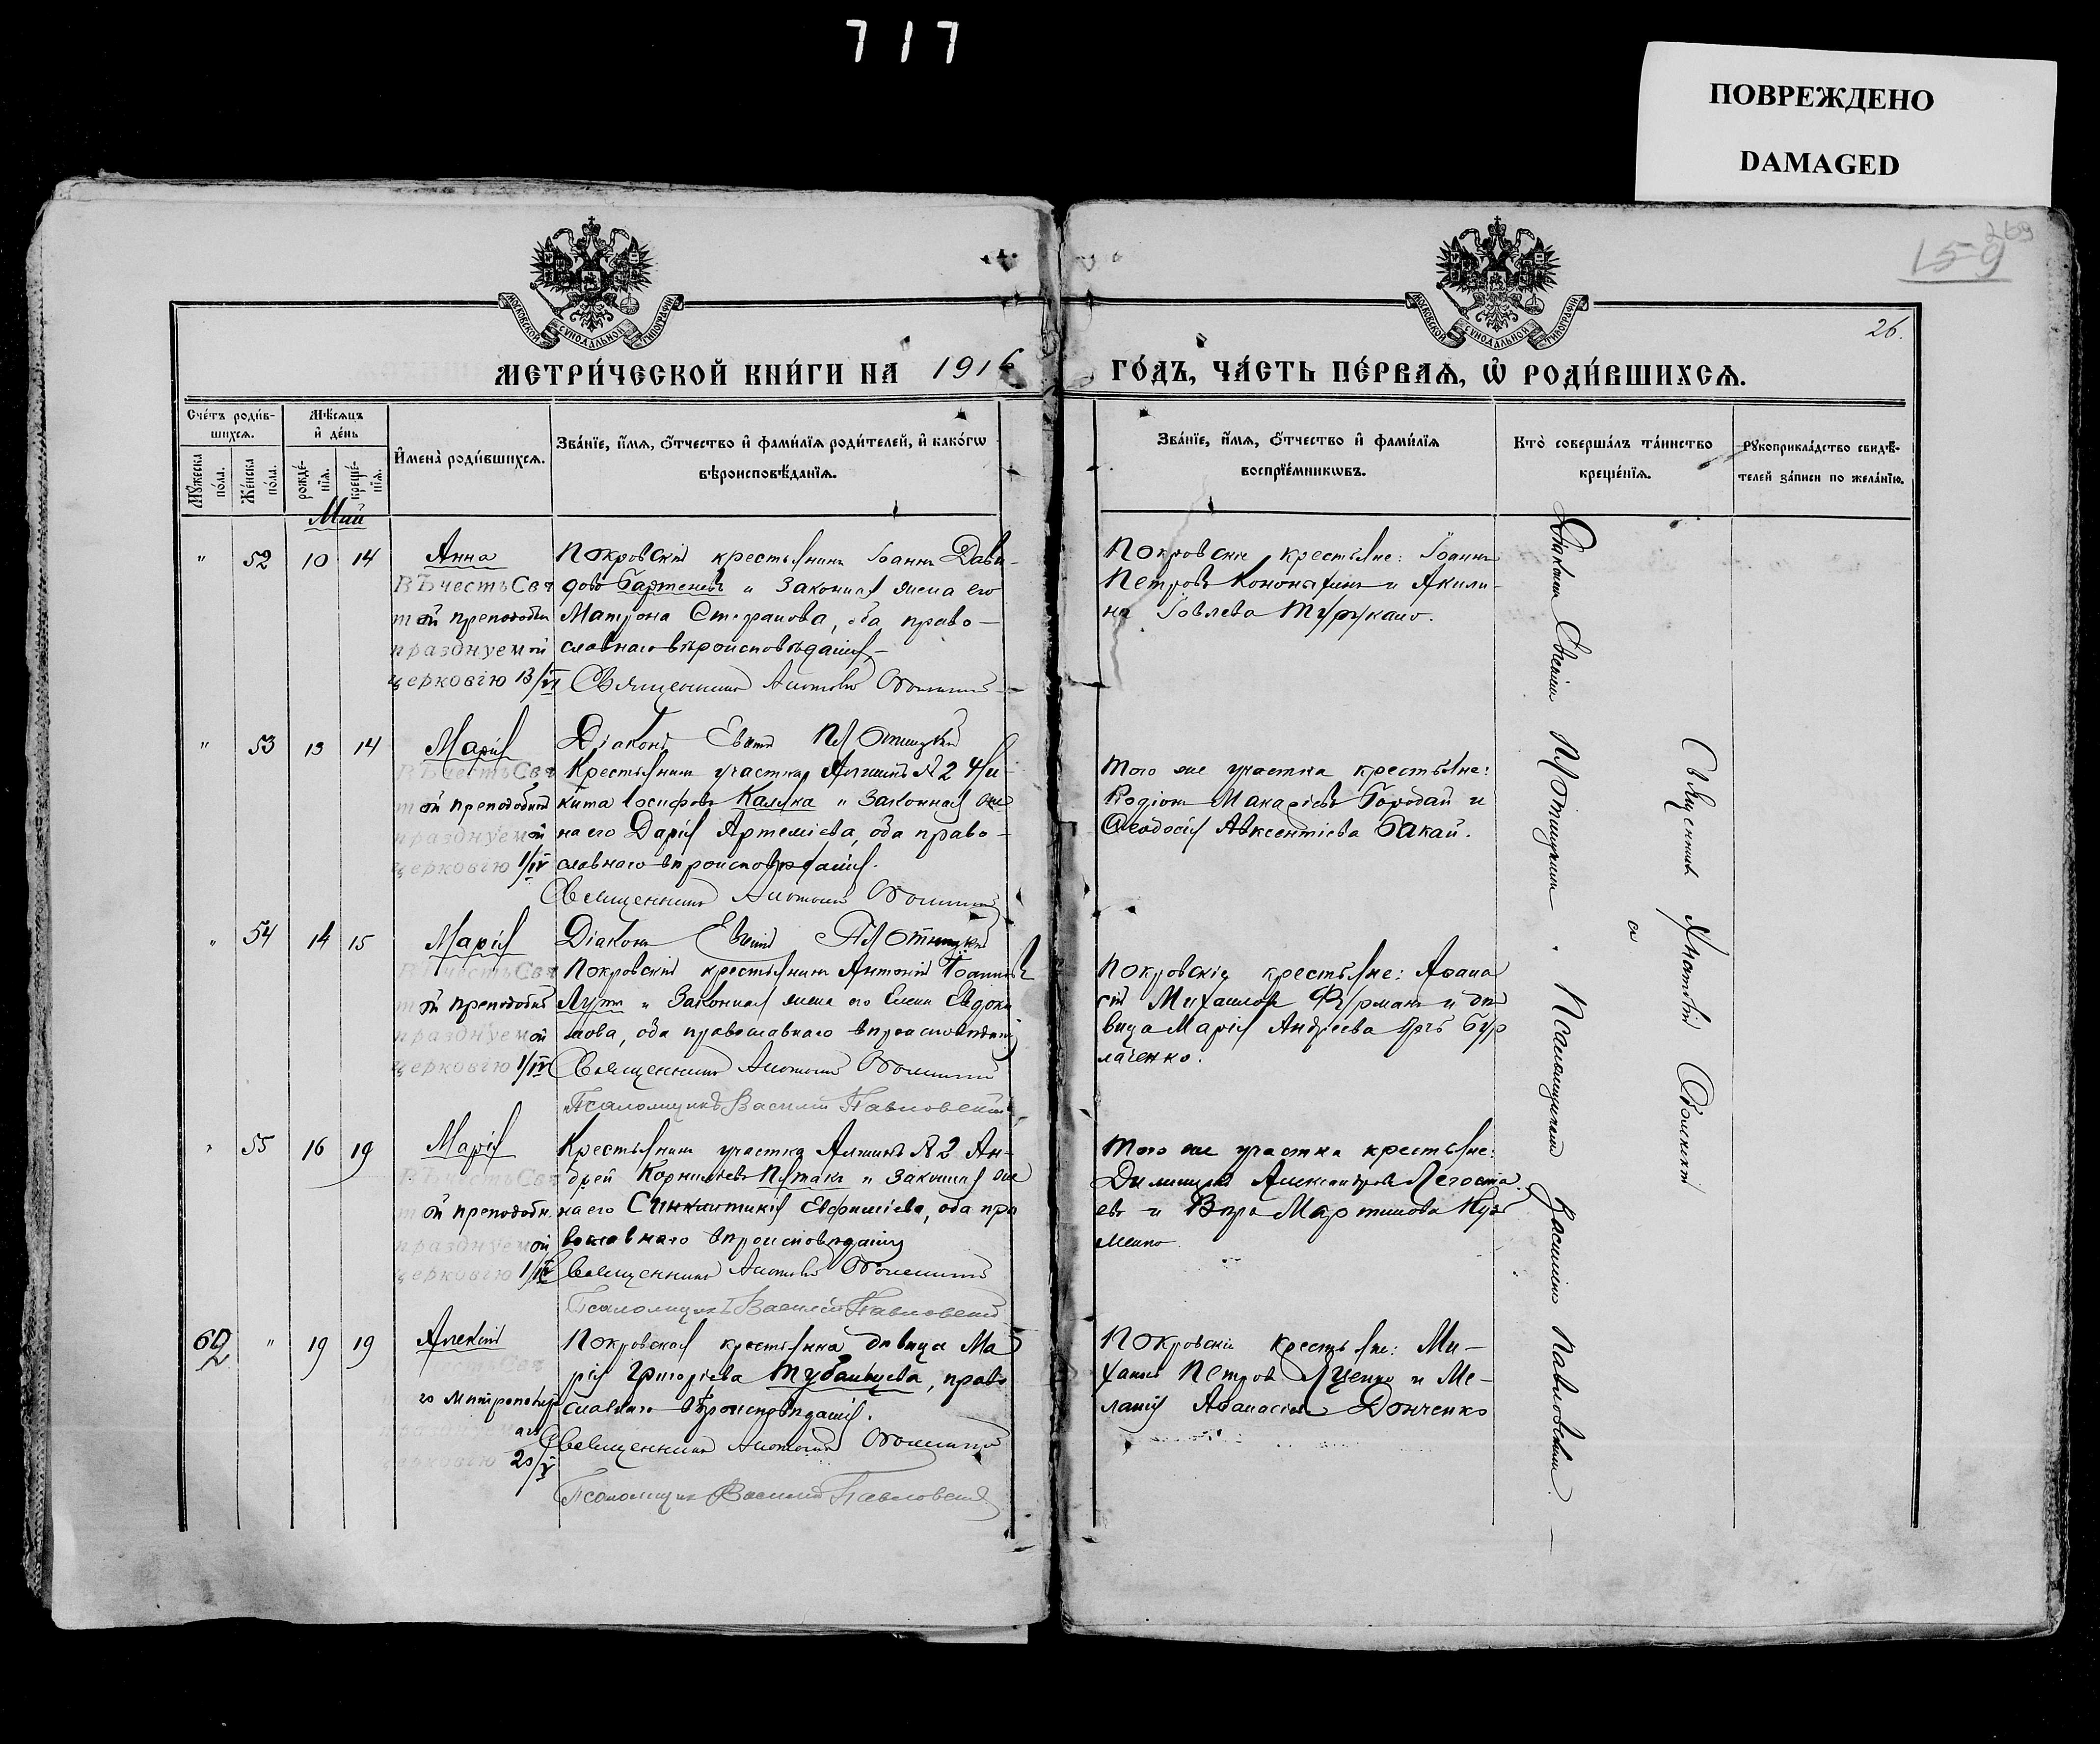 717
ПОВРЕЖДЕНО
DAMAGED
269
159
26.
МОСКОВСКОЙ СѴНОДАЛЬНОЙ ТИПОГРАФІИ
МОСКОВСКОЙ СѴНОДАЛЬНОЙ ТИПОГРАФІИ
МЕТРИ́ЧЕСКОЙ КНИ́ГИ НА 1916
ГО́ДЪ, ЧА́СТЬ ПЕ́РВАѦ, Ѡ҆ РОДИ́ВШИХСѦ.
Сче́тъ роди́в-
шихсѧ.
Мѣ́сѧцъ
и҆ де́нь
Мꙋ́жеска по́ла.
Же́нска по́ла.
рожде́-
нїѧ.
креще́-
нїѧ.
И҆мена̀ роди́вшихсѧ.
Зва́нїе, и҆́мѧ, ѻ҆́тчество и҆ фами́лїѧ роди́телей, и҆ како́гѡ
вѣроисповѣ́данїѧ.
Зва́нїе, и҆́мѧ, ѻ҆́тчество и҆ фами́лїѧ
воспрїе́мникѡвъ.
Кто̀ соверша́лъ та́инство
креще́нїѧ.
Рꙋкоприкла́дство свидѣ́-
телей за́писи по жела́нїю.
Май
" 52 10 14 Анна
Въ честь Свя
той преподобн
празднуемой
церковію 13/VI
Покровскій крестьянинъ Іоаннъ Дави-
довъ Бартеневъ и законная жена его
Матрона Стефанова, оба право-
славнаго вѣроисповѣданія
Священникъ
Покровскіе крестьяне: Іоаннъ
Петровъ и Акили-
на Іовлева
" 53 13 14 Марія
Въ честь Свя
той преподобной
празднуемой
церковію 1/IV
Діаконъ
Крестьянинъ участка № 2 Ни-
кита Іосифовъ Каляка и законная же
на его Дарія Артеміева, оба право-
славнаго вѣроисповѣданія.
Священникъ
Того же участка крестьяне:
Родіонъ Макаріевъ Бородай и
Ѳеодосія Авксентіева Бакай.
" 54 14 15 Марія
Въ честь Свя
той преподобной
празднуемой
церковію 1/IV
Діаконъ
Покровскій крестьянинъ Антоній Іоанновъ
и законная жена его Елена Евдоки
мова, оба православнаго вѣроисповѣданія
Священникъ
Псаломщикъ Василій Павловскій
Покровскіе крестьяне: Аѳана
сій Михаиловъ Фурманъ и дѣ
вица Марія Андреева Бур
лаченко.
" 55 16 19 Марія
Въ честь Свя
той преподобн.
празднуемой
церковію 1/IV
Крестьянинъ участка № 2 Ан-
дрей Корниліевъ и законная же
на его Синклитикія Евфиміева, оба пра
вославнаго вѣроисповѣданія
Священникъ
Псаломщикъ Василій Павловскій
Того же участка крестьяне:
Димитрій Александровъ Легоста
евъ и Вѣра Мартинова Куз
менко
62 " 19 19 Алексій
го митрополи
церковію 20/V
Покровская крестьянка дѣвица Ма
рія Григоріева Губанцева, право
славнаго вѣроисповѣданія.
Священникъ
Псаломщикъ Василій Павловскій
Покровскіе крестьяне: Ми-
хаилъ Петровъ Луценко и Ме-
ланія Аѳанасіева Донченко
Священникъ
съ
Псаломщикомъ Василіемъ Павловскимъ.